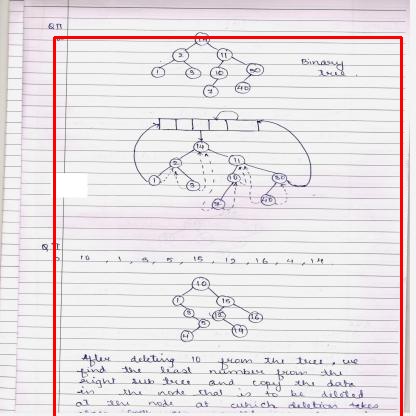 Q II
14
2 11
1 3 10 30
7 40
Binary
tree.
14
2 11
1 3 10 30
7 40
Q II
10 , 1 , 3 , 5 , 15 , 12 , 16 , 4 , 14
10
1 15
3 12 16
5 14
4
After deleting 10 from the tree, we
find the least number from the
right sub tree and copy the data
in the node that is to be deleted
at the node at which deletion takes